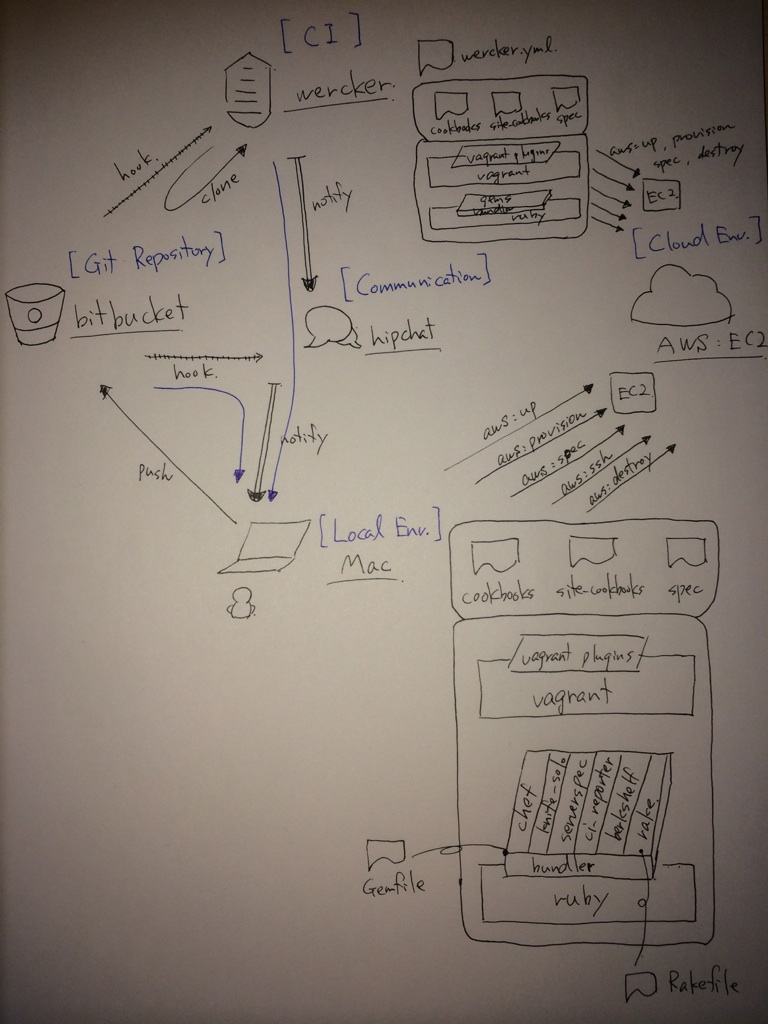 [CI]
wercker.
wercker.yml.
cookbooks
site-cookbooks
spec
vagrant plugins
vagrant
gems
bundler
ruby
aws:up, provision
spec, destroy
EC2
[Cloud Env.]
AWS:EC2
hook.
clone
notify
[Git Repository]
bitbucket
[Communication]
hipchat
hook.
notify
push
[Local Env.]
Mac
EC2
aws:up
aws:provision
aws:spec
aws:ssh
aws:destroy
cookbooks
site-cookbooks
spec
vagrant plugins
vagrant
chef
knife-solo
serverspec
ci-reporter
berkshelf
rake
bundler
ruby
Gemfile
Rakefile